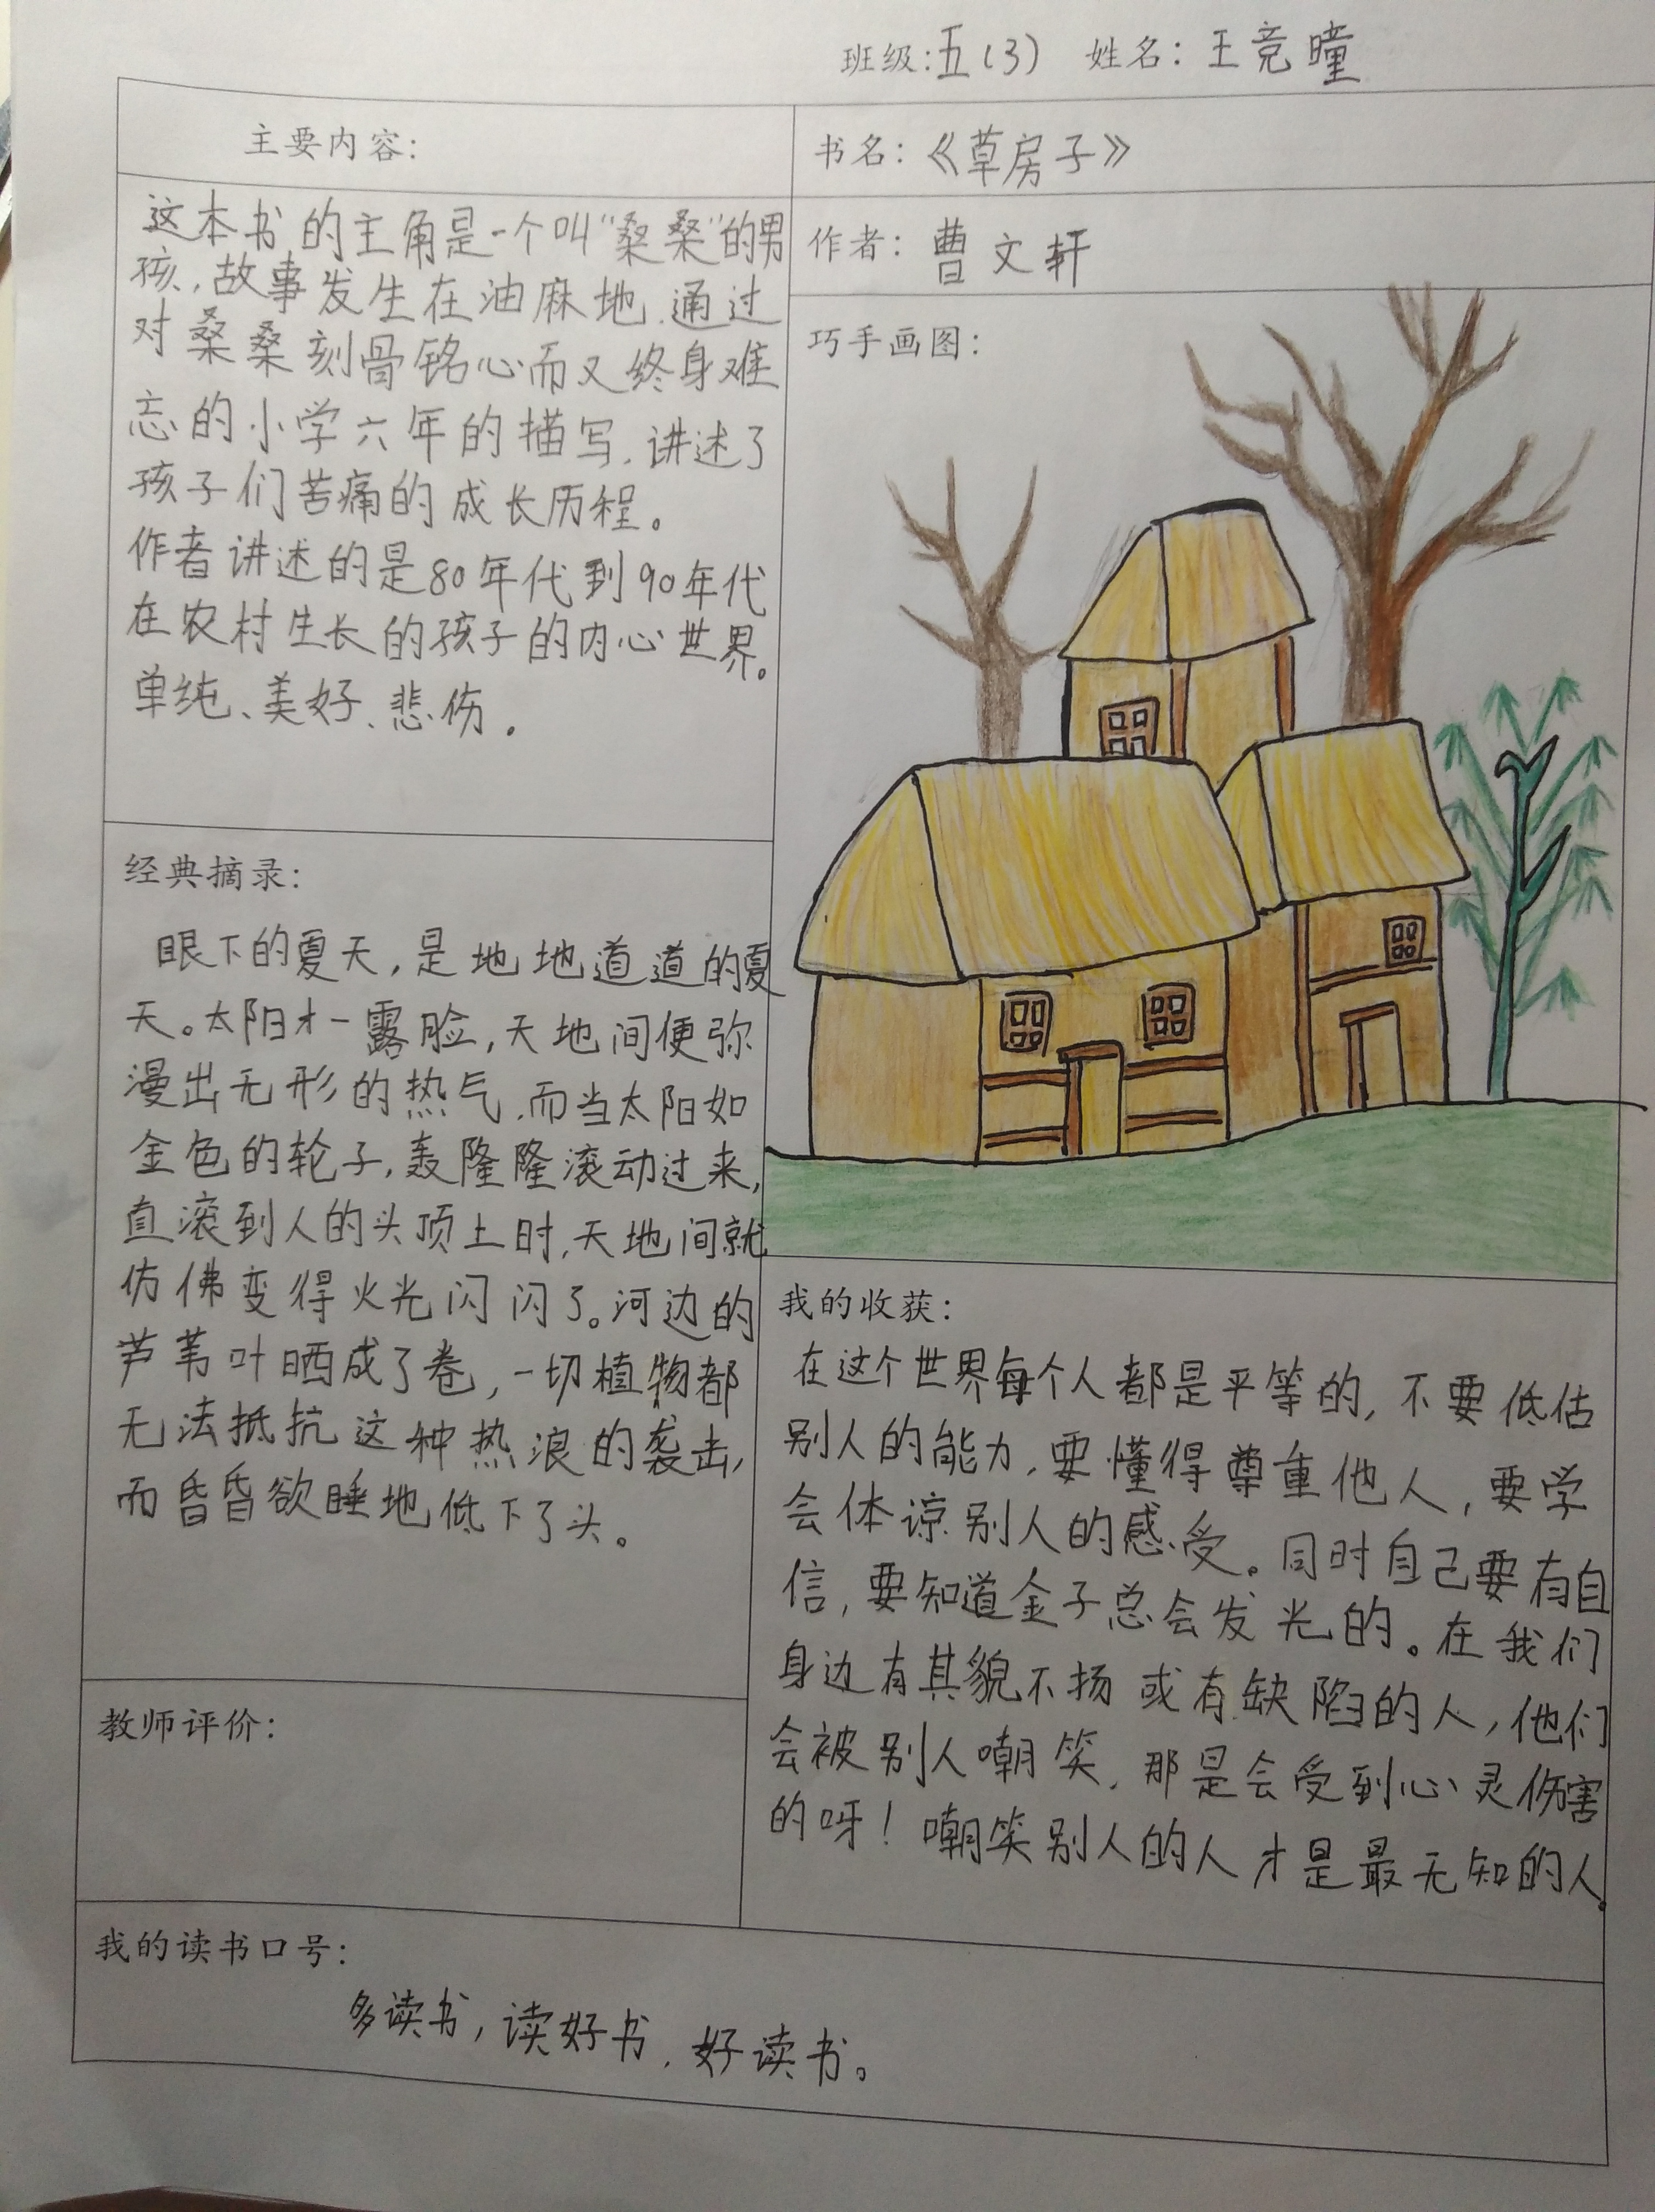 班级:五(3) 姓名:王竞曈
主要内容:
这本书的主角是一个叫“桑桑”的男
孩,故事发生在油麻地.通过
对桑桑刻骨铭心而又终身难
忘的小学六年的描写.讲述了
孩子们苦痛的成长历程。
作者讲述的是80年代到90年代
在农村生长的孩子的内心世界。
单纯、美好、悲伤.
书名:《草房子》
作者:曹文轩
巧手画图:
经典摘录:
眼下的夏天,是地地道道的夏
天。太阳才一露脸,天地间便弥
漫出无形的热气.而当太阳如
金色的轮子,轰隆隆滚动过来,
直滚到人的头顶上时,天地间就
仿佛变得火光闪闪了。河边的
芦苇叶晒成了卷,一切植物都
无法抵抗这种热浪的袭击,
而昏昏欲睡地低下了头。
我的收获:
在这个世界每个人都是平等的,不要低估
别人的能力,要懂得尊重他人,要学
会体谅别人的感受。同时自己要有自
信,要知道金子总会发光的。在我们
身边有其貌不扬或有缺陷的人,他们
会被别人嘲笑,那是会受到心灵伤害
的呀!嘲笑别人的人才是最无知的人。
教师评价:
我的读书口号:
多读书,读好书,好读书。